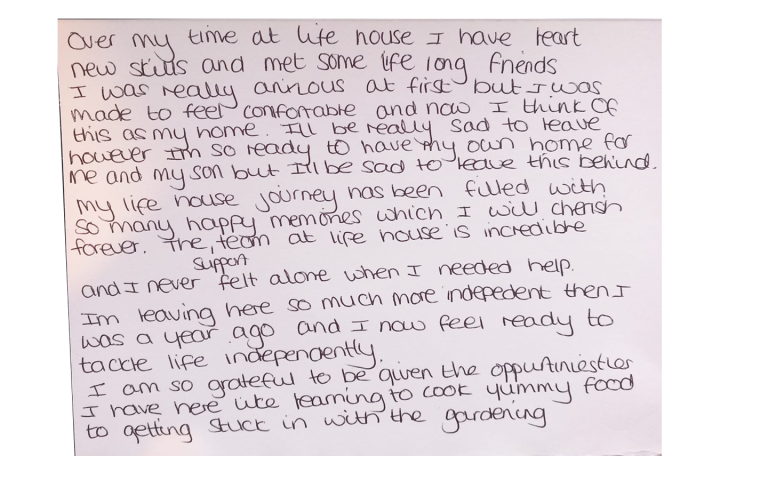 Over my time at life house I have leart
new skills and met some life long friends
I was really anxious at first but I was
made to feel comfortable and now I think of
this as my home. I'll be really sad to leave
however I'm so ready to have my own home for
me and my son but I'll be sad to leave this behind.
my life house journey has been filled with
so many happy memories which I will cherish
forever. The, team at life house is incredible
support
and I never felt alone when I needed help.
Im leaving here so much more indepedent then I
was a year ago and I now feel ready to
tackle life independently.
I am so grateful to be given the
I have here like learning to cook yummy food
to getting stuck in with the gardening